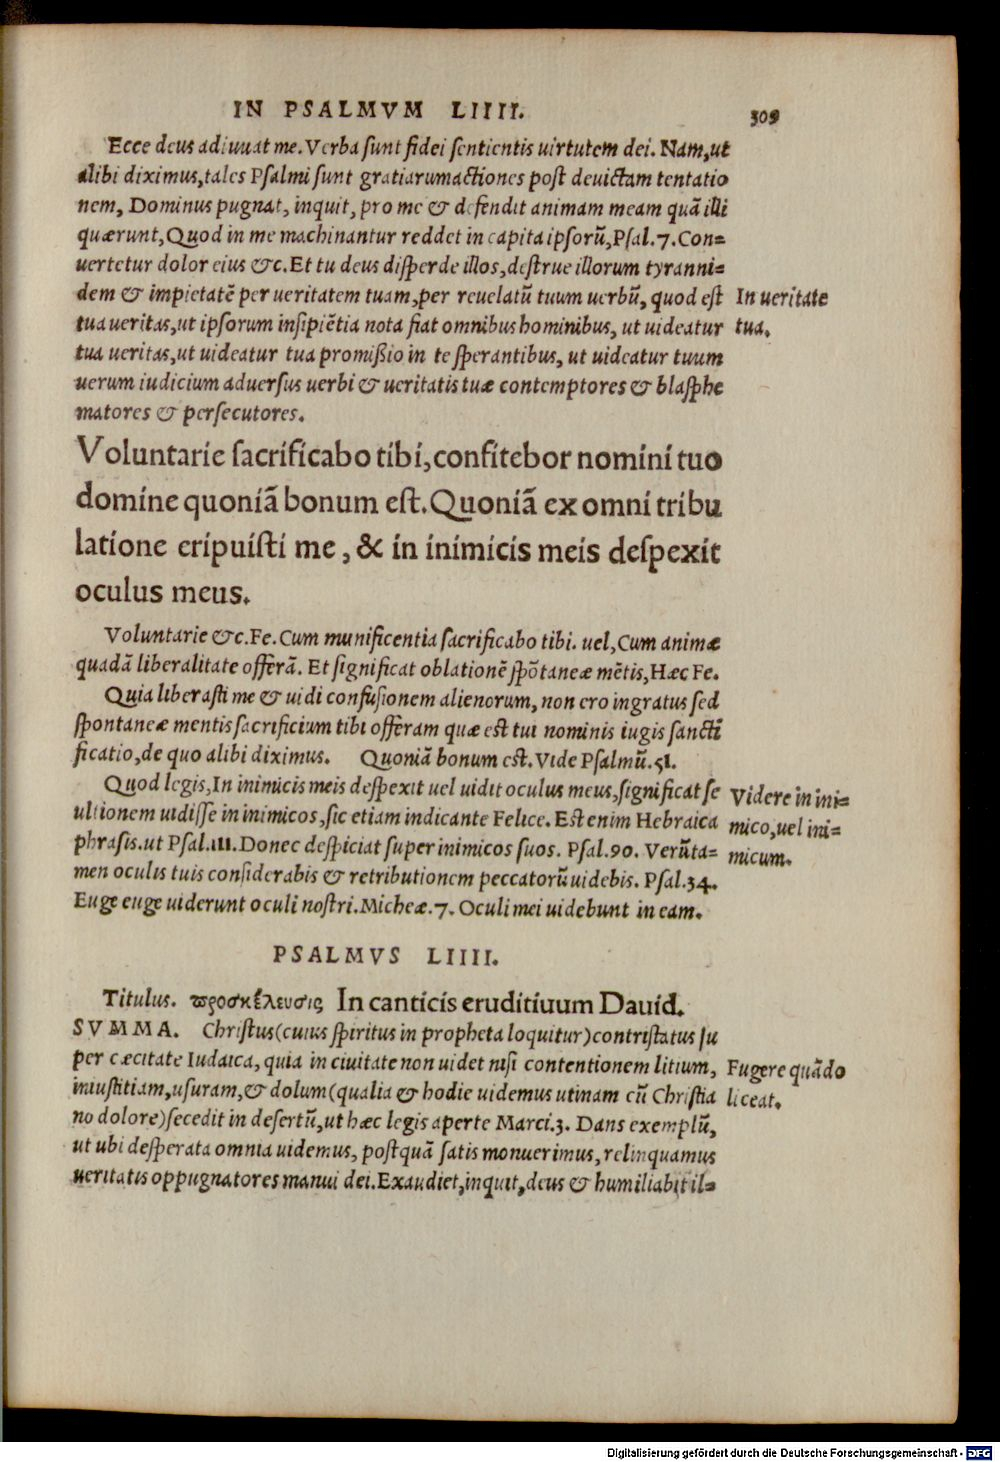 IN PSALMVM LIIII. 309
Ecce deus adiuuat me. Verba sunt fidei sentientis uirtutem dei. Nam, ut
alibi diximus, tales Psalmi sunt gratiarumactiones post deuictam tentatio
nem, Dominus pugnat, inquit, pro me & defendit animam meam quā illi
quærunt, Quod in me machinantur reddet in capita ipsorū, Psal. 7. Con=
uertetur dolor eius &c. Et tu deus disperde illos, destrue illorum tyranni=
dem & impietatē per ueritatem tuam, per reuelatū tuum uerbū, quod est
In ueritate
tua ueritas, ut ipsorum insipiētia nota fiat omnibus hominibus, ut uideatur
tua.
tua ueritas, ut uideatur tua promißio in te sperantibus, ut uideatur tuum
uerum iudicium aduersus uerbi & ueritatis tuæ contemptores & blasphe
matores & persecutores.
Voluntarie sacrificabo tibi, confitebor nomini tuo
domine quoniā bonum est. Quoniā ex omni tribu
latione eripuisti me, & in inimicis meis despexit
oculus meus.
Voluntarie &c. Fe. Cum munificentia sacrificabo tibi. uel, Cum animæ
quadā liberalitate offerā. Et significat oblationē spōtaneæ mētis, Hæc Fe.
Quia liberasti me & uidi confusionem alienorum, non ero ingratus sed
spontaneæ mentis sacrificium tibi offeram quæ est tui nominis iugis sancti
ficatio, de quo alibi diximus. Quoniā bonum est. Vide Psalmū. 51.
Quod legis, In inimicis meis despexit uel uidit oculus meus, significat se
Videre in ini=
ultionem uidisse in inimicos, sic etiam indicante Felice. Est enim Hebraica
mico, uel ini=
phrasis. ut Psal. 111. Donec despiciat super inimicos suos. Psal. 90. Verūta=
micum.
men oculis tuis considerabis & retributionem peccatorū uidebis. Psal. 34.
Euge euge uiderunt oculi nostri. Micheæ. 7. Oculi mei uidebunt in eam.
PSALMVS LIIII.
Titulus. προσκέλευσις In canticis eruditiuum Dauid.
SVMMA. Christus (cuius spiritus in propheta loquitur) contristatus su
per cæcitate Iudaica, quia in ciuitate non uidet nisi contentionem litium,
Fugere quādo
iniustitiam, usuram, & dolum (qualia & hodie uidemus utinam cū Christia
liceat.
no dolore) secedit in desertū, ut hæc legis aperte Marci. 3. Dans exemplū,
ut ubi desperata omnia uidemus, postquā satis monuerimus, relinquamus
ueritatis oppugnatores manui dei. Exaudiet, inquit, deus & humiliabit il=
Digitalisierung gefördert durch die Deutsche Forschungsgemeinschaft - DFG